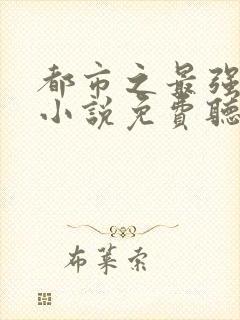 都市之最强
小説免費聽
布莱索